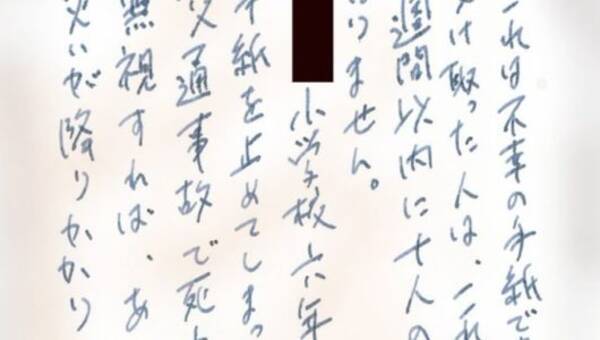 これは不幸の手紙で
け取った人は、これ
週間以内に十人の
りません。
小学校六年
手紙を止めてしまっ
交通事故で死
無視すれば、あ
災いが降りかかり